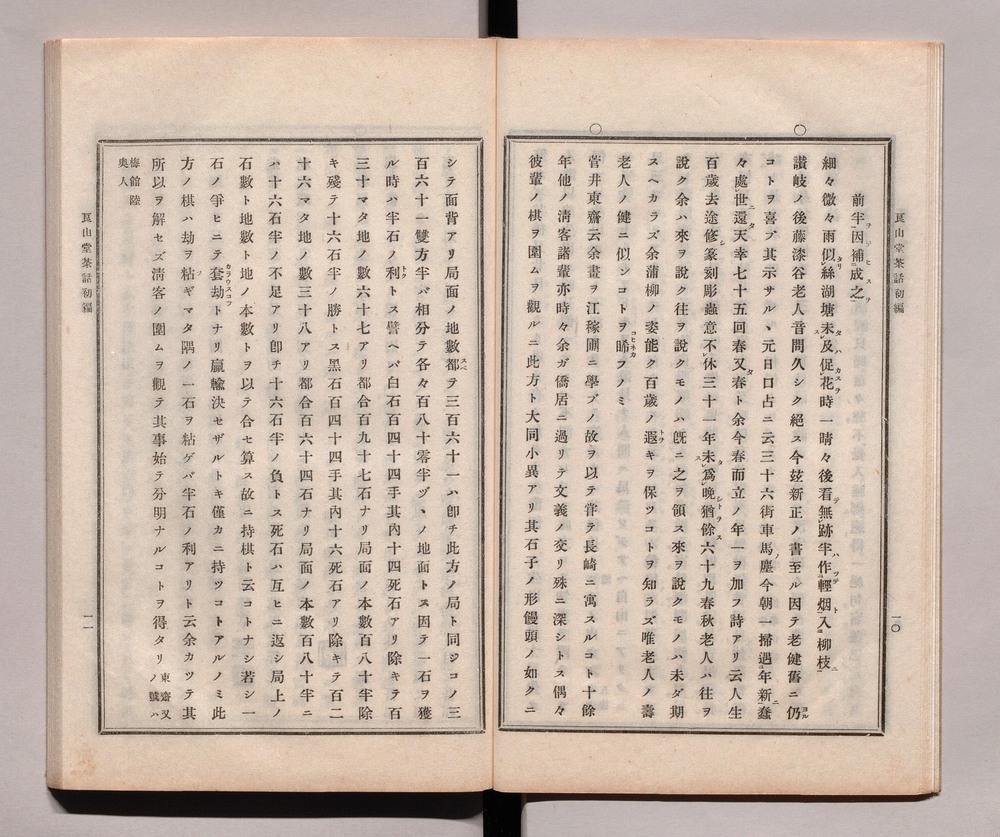 莨山堂茶話初編
一〇
前半因補成之
細々微々雨似絲湖塘未及促花時一晴々後看無跡半作輕烟入柳枝
○
讃岐ノ後藤漆谷老人音問久シク絕ス今玆新正ノ書至ル因テ老健舊ニ仍
コトヲ喜ブ其示サル丶元日口占ニ云三十六街車馬塵今朝一掃遇年新蠢
々處世還天幸七十五回春又春ト余今春而立ノ年一ヲ加フ詩アリ云人生
百歲去途修篆刻彫蟲意不休三十一年未爲晚猶餘六十九春秋老人ハ往ヲ
說ク余ハ來ヲ說ク往ヲ說クモノハ旣ニ之ヲ領ス來ヲ說クモノハ未ダ期
スヘカラズ余蒲柳ノ姿能ク百歲ノ遐キヲ保ツコトヲ知ラズ唯老人ノ壽
老人ノ健ニ似ンコトヲ睎フノミ
○
菅井東齋云余畫ヲ江稼圃ニ學ブノ故ヲ以テ甞テ長崎ニ寓スルコト十餘
年他ノ淸客諸輩亦時々余ガ僑居ニ過リテ文義ノ交リ殊ニ深シトス偶々
彼輩ノ棋ヲ圍ムヲ觀ルニ此方ト大同小異アリ其石子ノ形饅頭ノ如クニ
シテ面背アリ局面ノ地數都テ三百六十一ハ卽チ此方ノ局ト同ジコノ三
百六十一雙方半バ相分テ各々百八十零半ヅヽノ地面トス因テ一石ヲ獲
ル時ハ半石ノ利トス譬ヘバ白石百四十四手其內十四死石アリ除キテ百
三十マタ地ノ數六十七アリ都合百九十七石ナリ局面ノ本數百八十半除
キ殘テ十六石半ノ勝トス黑石百四十四手其內十六死石アリ除キテ百二
十六マタ地ノ數三十八アリ都合百六十四石ナリ局面ノ本數百八十半ニ
ハ十六石半ノ不足アリ卽チ十六石半ノ負トス死石ハ互ヒニ返シ局上ノ
石數ト地數ト地ノ本數トヲ以テ合セ算ス故ニ持棋ト云コトナシ若シ一
石ノ爭ヒニテ套劫トナリ贏輸決セザルトキ僅カニ持ツコトアルノミ此
方ノ棋ハ劫ヲ粘ギマタ隅ノ一石ヲ粘グバ半石ノ利アリト云余カツテ其
所以ヲ解セズ淸客ノ圍ムヲ觀テ其事始テ分明ナルコトヲ得タリ東齋又ノ號ハ
梅館陸奧人
莨山堂茶話初編
一一